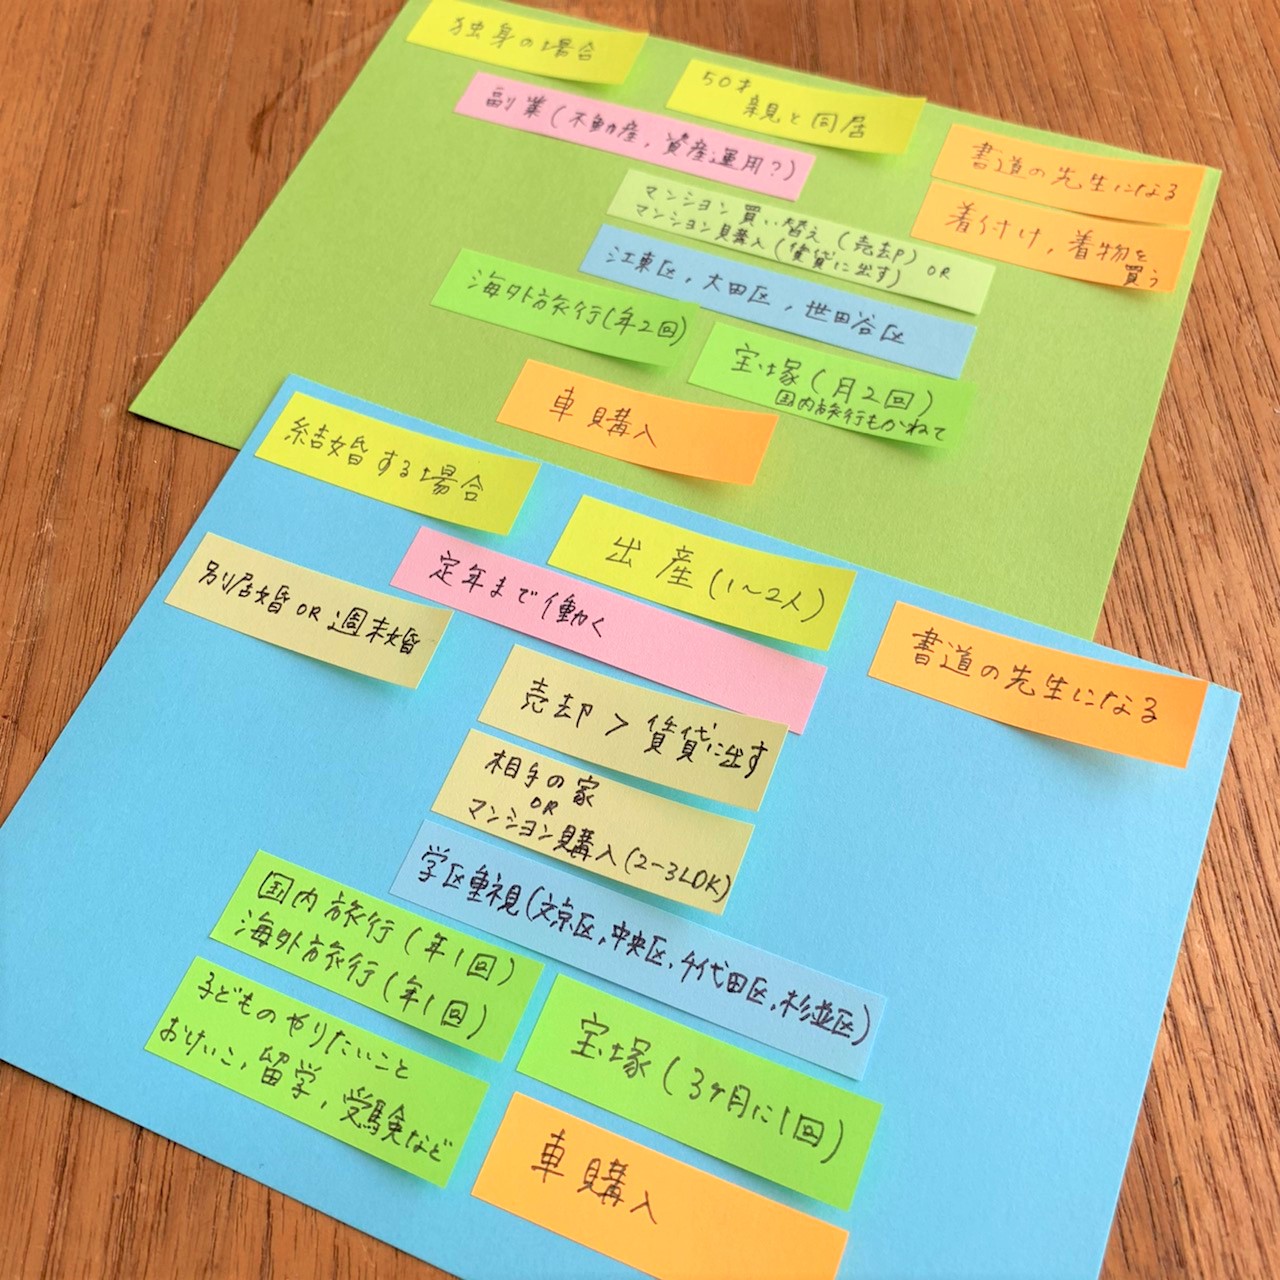 独身の場合
50才
親と同居
副業(不動産,資産運用?)
書道の先生になる
マンション買い替え(売却)OR
マンション購入(賃貸に出す)
着付け,着物を
買う
江東区,大田区,世田谷区
海外旅行(年2回)
宝塚(月2回)
国内旅行もかねて
車購入
結婚する場合
出産(1~2人)
定年まで働く
別居婚OR週末婚
書道の先生になる
売却>賃貸に出す
相手の家
OR
マンション購入(2-3LDK)
学区重視(文京区,中央区,千代田区,杉並区)
国内旅行(年1回)
海外旅行(年1回)
子どものやりたいこと
おけいこ,留学,受験など
宝塚(3ヶ月に1回)
車購入